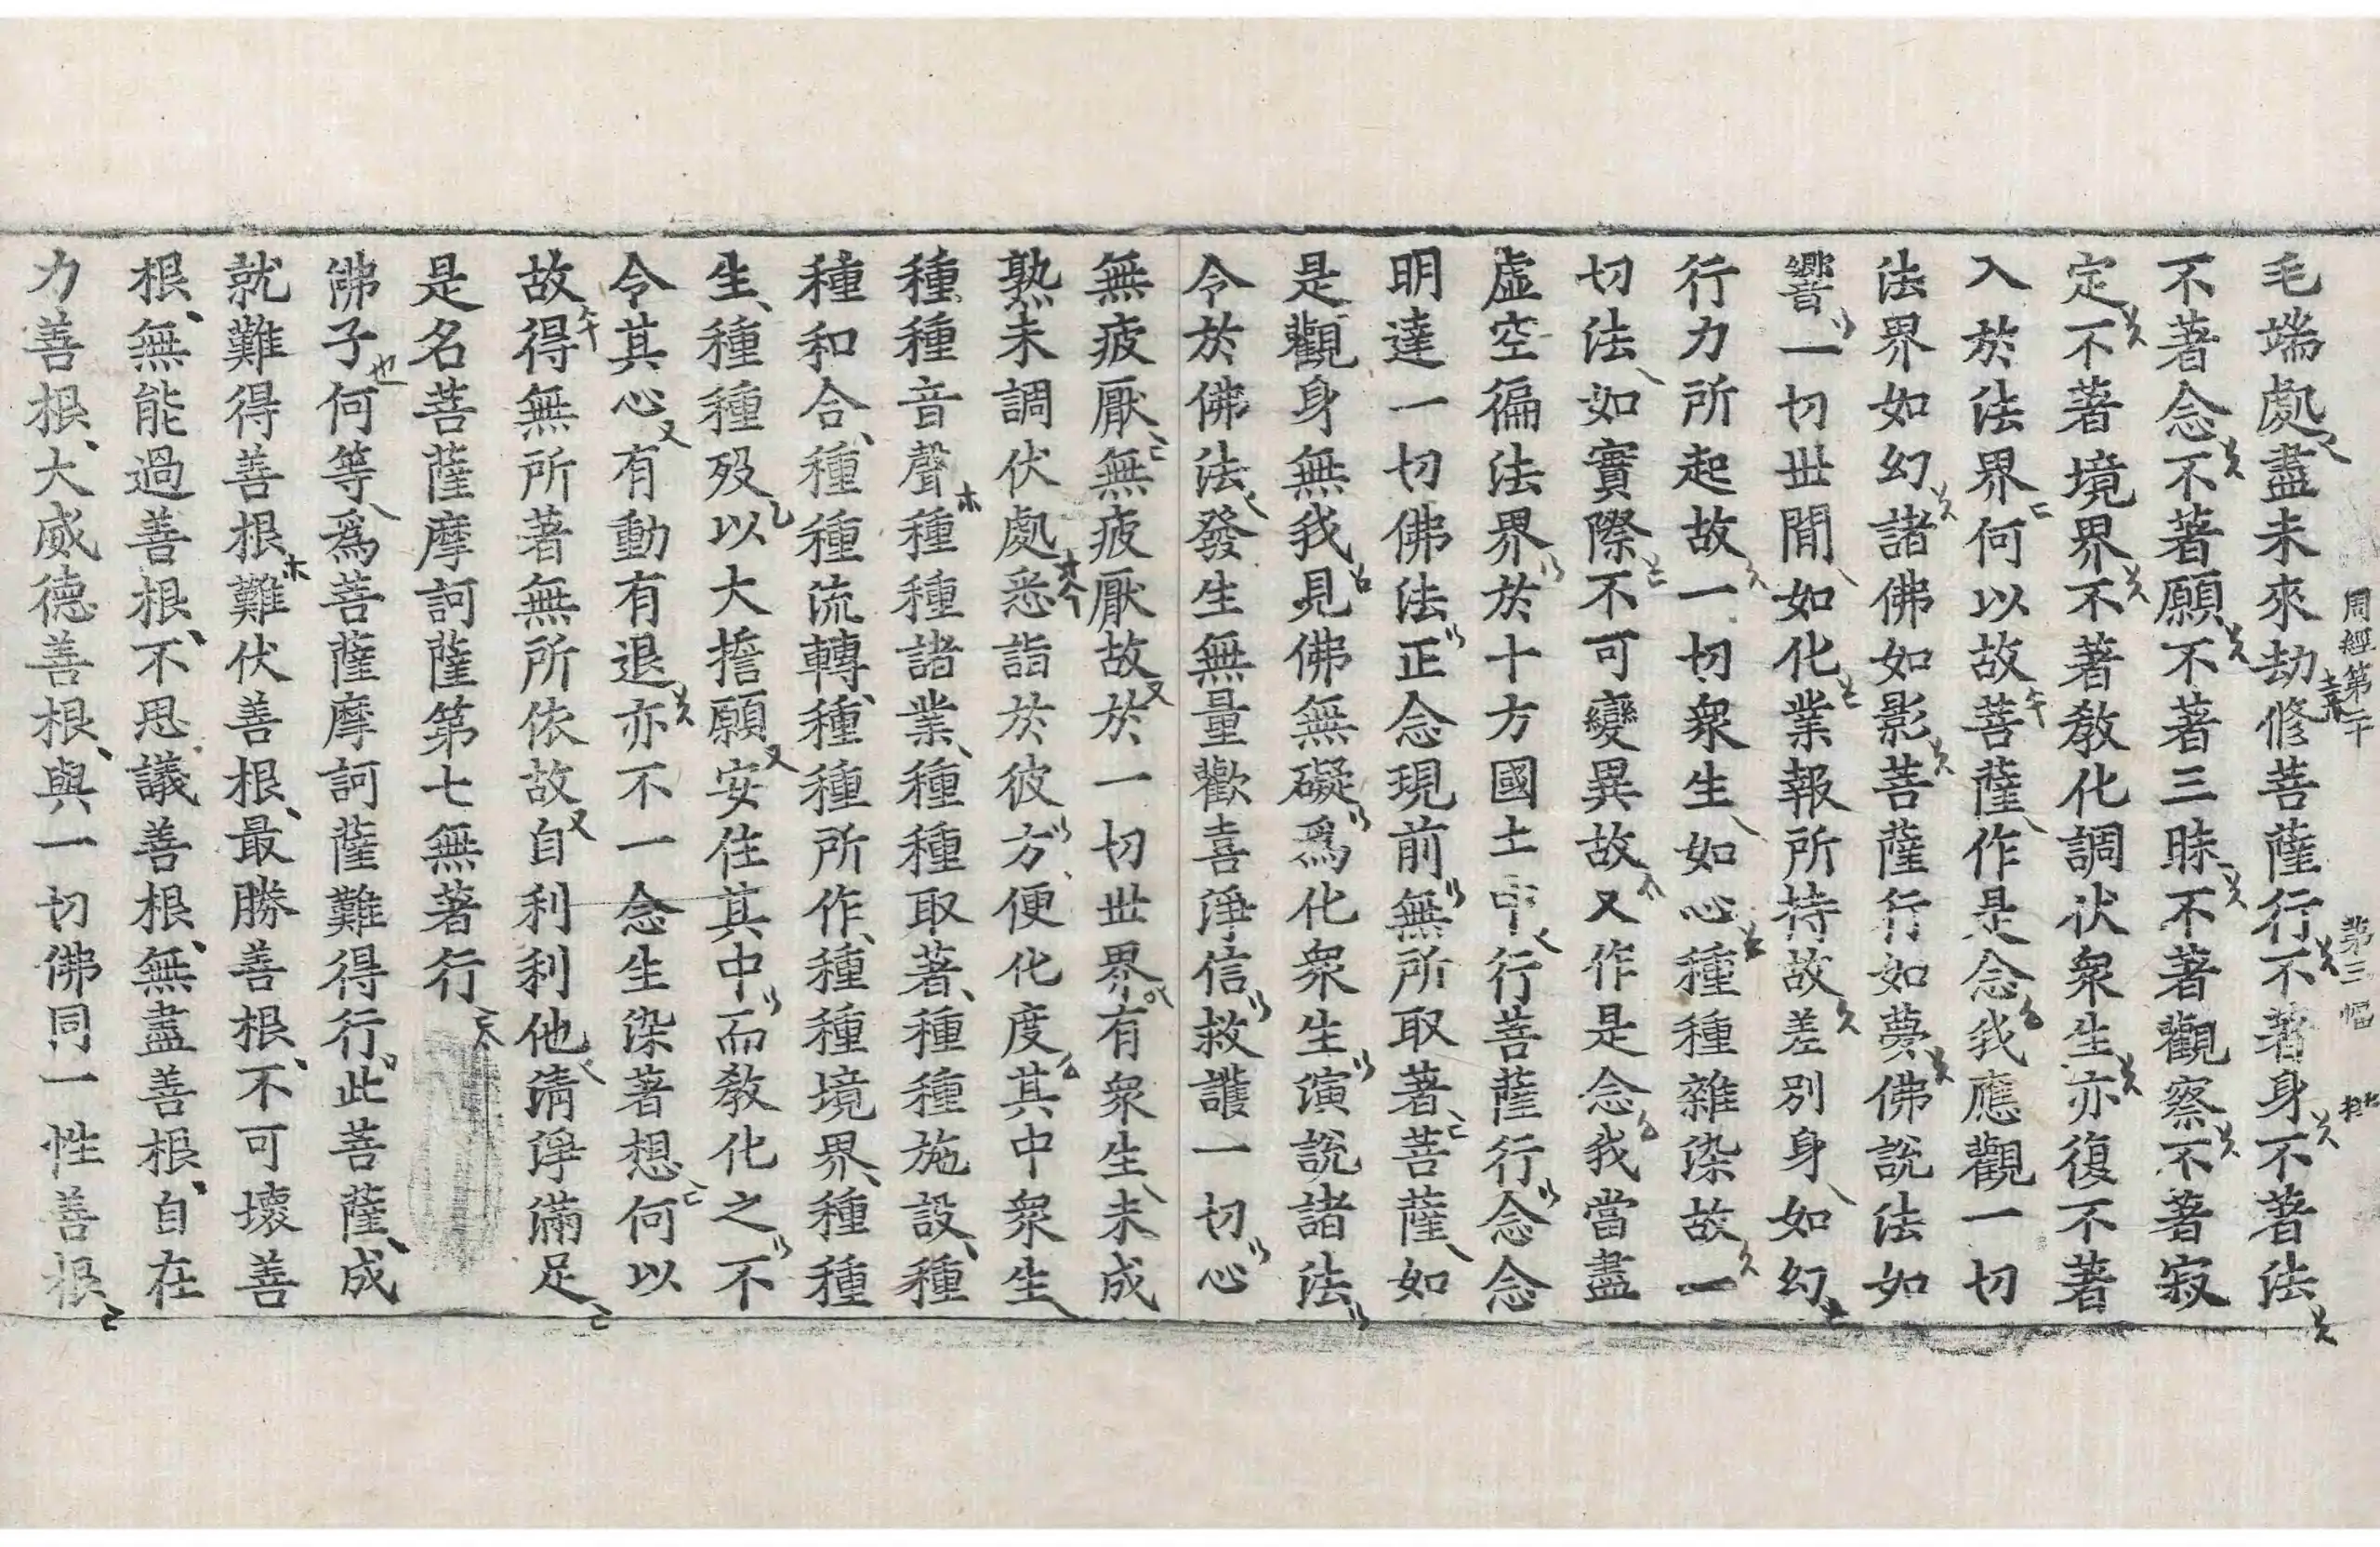 毛端處盡未來劫修菩薩行不著身不著法
周經第二十 第三幅
不著念不著願不著三昧不著觀察不著寂
定不著境界不著教化調伏衆生亦復不著
入於法界何以故菩薩作是念我應觀一切
法界如幻諸佛如影菩薩行如夢佛說法如
響一切世間如化業報所持故差別身如幻
行力所起故一切衆生如心種種雜染故一
切法如實際不可變異故又作是念我當盡
虛空徧法界於十方國土中行菩薩行念念
明達一切佛法正念現前無所取著菩薩如
是觀身無我見佛無礙爲化衆生演說諸法
令於佛法發生無量歡喜淨信救護一切心
無疲厭無疲厭故於一切世界有衆生未成
熟未調伏處悉詣於彼方便化度其中衆生
種種音聲種種諸業種種取著種種施設種
種和合種種流轉種種所作種種境界種種
生種種歿以大擔願安住其中而教化之不
令其心有動有退亦不一念生染著想何以
故得無所著無所依故自利利他淸淨滿足
是名菩薩摩訶薩第七無著行
佛子何等爲菩薩摩訶薩難得行此菩薩成
就難得善根難伏善根最勝善根不可壞善
根無能過善根不思議善根無盡善根自在
力善根大威德善根與一切佛同一性善根